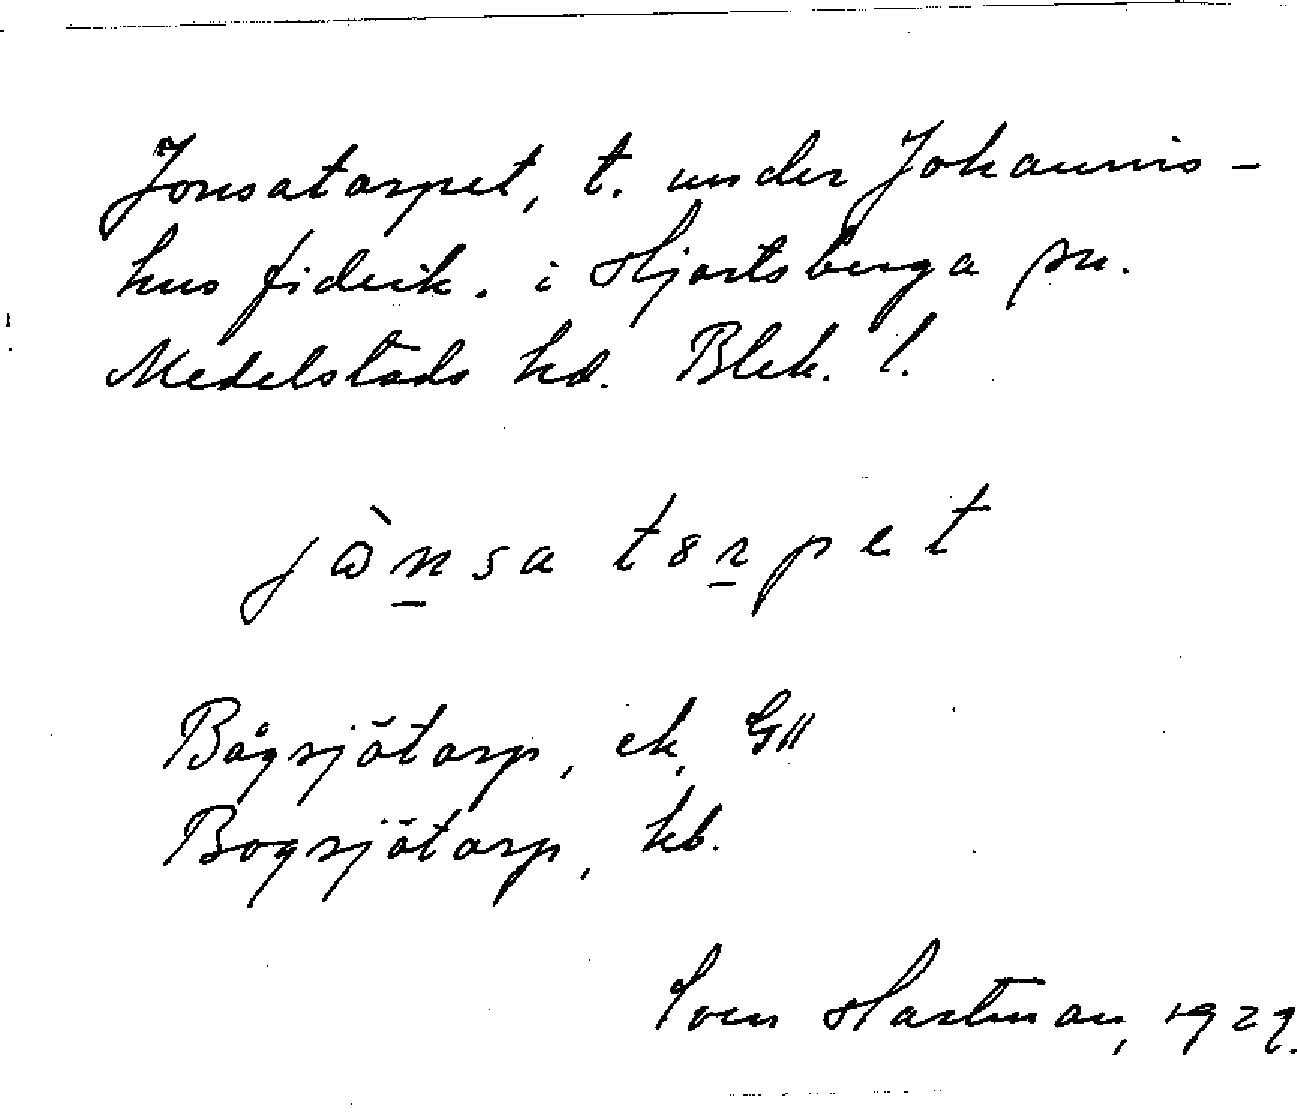 Jonsatorpet, t. under Johannis-
hus fideik. i Hjortsberga sn.
Medelstads hd. Blek. l.
jònsa torpet
Bågsjötorp, ek, GH
Bogsjötorp, kb.
Sven Hartman, 1929.